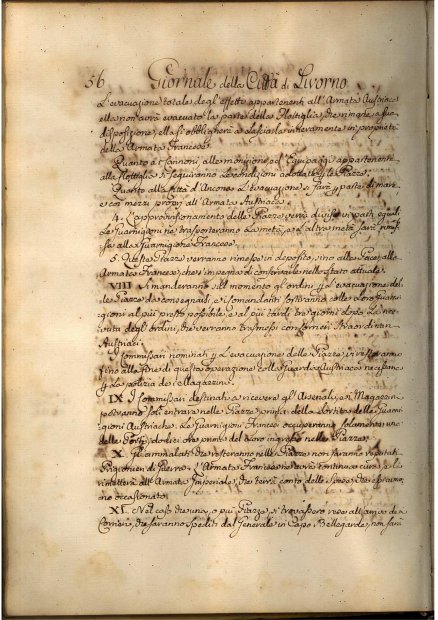 56 Giornale della Città di Livorno
L'evacuazione totale degl'effetti appartenenti all'Armata Austriaca
ella non avrà evacuato la parte della Flottiglia, che rimade a sua
disposizione, ella si obbligherà a lasciarla interamente in proprietà
della Armata Francese.
Quanto a i Cannoni, alle monizioni, ed Equipaggi appartenenti
alla Flottiglia si seguiranno le condizioni adottate le Piazze.
Quanto alla Città d'Ancona l'evacuazione si farà parte di mare,
e coi mezzi propri all'Armata Austriaca.
4. L'approvvisionamento delle Piazze verrà diviso in parti eguali.
Le Guarnigioni ne trasporteranno la metà, e l'altra metà sarà rimes-
sa alla Guarnigione Francese.
5. Queste Piazze verranno rimesse in deposito, sino alla Pace, alla
Armata Francese, che s'impegna di conservarle nello stato attuale.
VIII. Si manderanno sul momento gl'ordini l'evacuazione del-
le Piazze da consegnarsi, e i Comandanti sortiranno colle loro Guarni-
gioni al più presto possibile, e al più tardi tre giorni dopo la rice-
vuta degl'ordini, che verranno trasmessi con Corrieri Straordinari
Austriaci.
I Commissari nominati l'evacuazione delle Piazze, vi resteranno
fino alla fine di questa operazione colla Guardia Austriaca necessaria
la polizia dei Magazzini.
IX. I Commissari destinati a ricevere gli Arsenali, e i Magazzini
potranno soli entrare nelle Piazze, prima della Sortita delle Guarni-
gioni Austriache. Le Guarnigioni Francesi occuperanno solamente una
delle Porte, dodici ore prima del loro ingresso nelle Piazze.
X. Gli ammalati che resteranno nelle Piazze non saranno reputati
Prigionieri di guerra. L'Armata Francese ne avrà continua cura, e li
rimetterà all'Armata Imperiale, che terrà conto delle spese, che avran-
no occasionato.
XI. Nel caso che una, o più Piazze, si trovassero rese all'arrivo de'
Corrieri, che saranno spediti dal Generale in Capo Bellegarde, non sarà